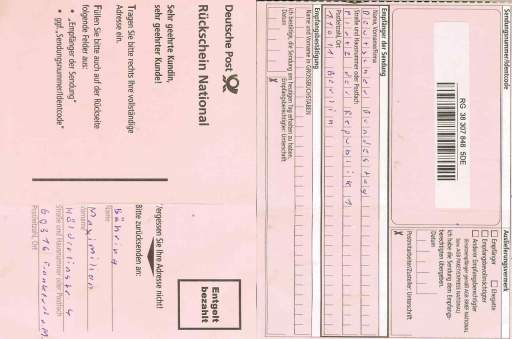 Deutsche Post
Rückschein National
Sehr geehrte Kundin,
sehr geehrter Kunde!
Tragen Sie bitte rechts Ihre vollständige
Adresse ein.
Füllen Sie bitte auch auf der Rückseite
folgende Felder aus:
• „Empfänger der Sendung"
• ggf. „Sendungsnummer/Identcode"
Entgelt
bezahlt
Vergessen Sie Ihre Adresse nicht!
Bitte zurücksenden an:
Bähring
Name
Maximilian
Vorname
Hölderlinstr. 4
Straße und Hausnummer oder Postfach
60316 Frankfurt a.M.
Postleitzahl, Ort
Sendungsnummer/Identcode
RG 38 307 848 5DE
Auslieferungsvermerk
Empfänger
Ehegatte
Empfangsbevollmächtigter
Anderer Empfangsberechtigter
Ich habe die Sendung dem Empfangs-
berechtigten übergeben.
Datum
Postmitarbeiter/Zusteller: Unterschrift
X
Empfänger der Sendung
Name, Vorname/Firma
Deutscher Bundestag
Straße und Hausnummer oder Postfach
Platz der Republik 1
Postleitzahl, Ort
11011 Berlin
Empfangsbestätigung
Name und Vorname in GROSSBUCHSTABEN
Ich bestätige, die Sendung am heutigen Tag erhalten zu haben.
Datum
Empfangsberechtigter: Unterschrift
X